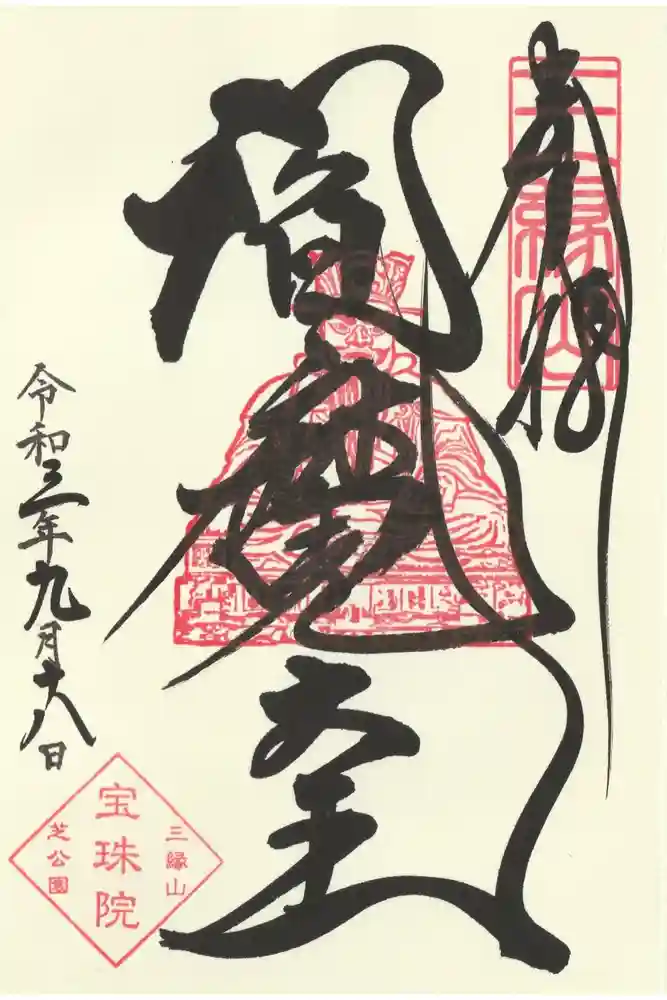 奉拝
三縁山
閻魔大王
令和三年九月十八日
三縁山
宝珠院
芝公園